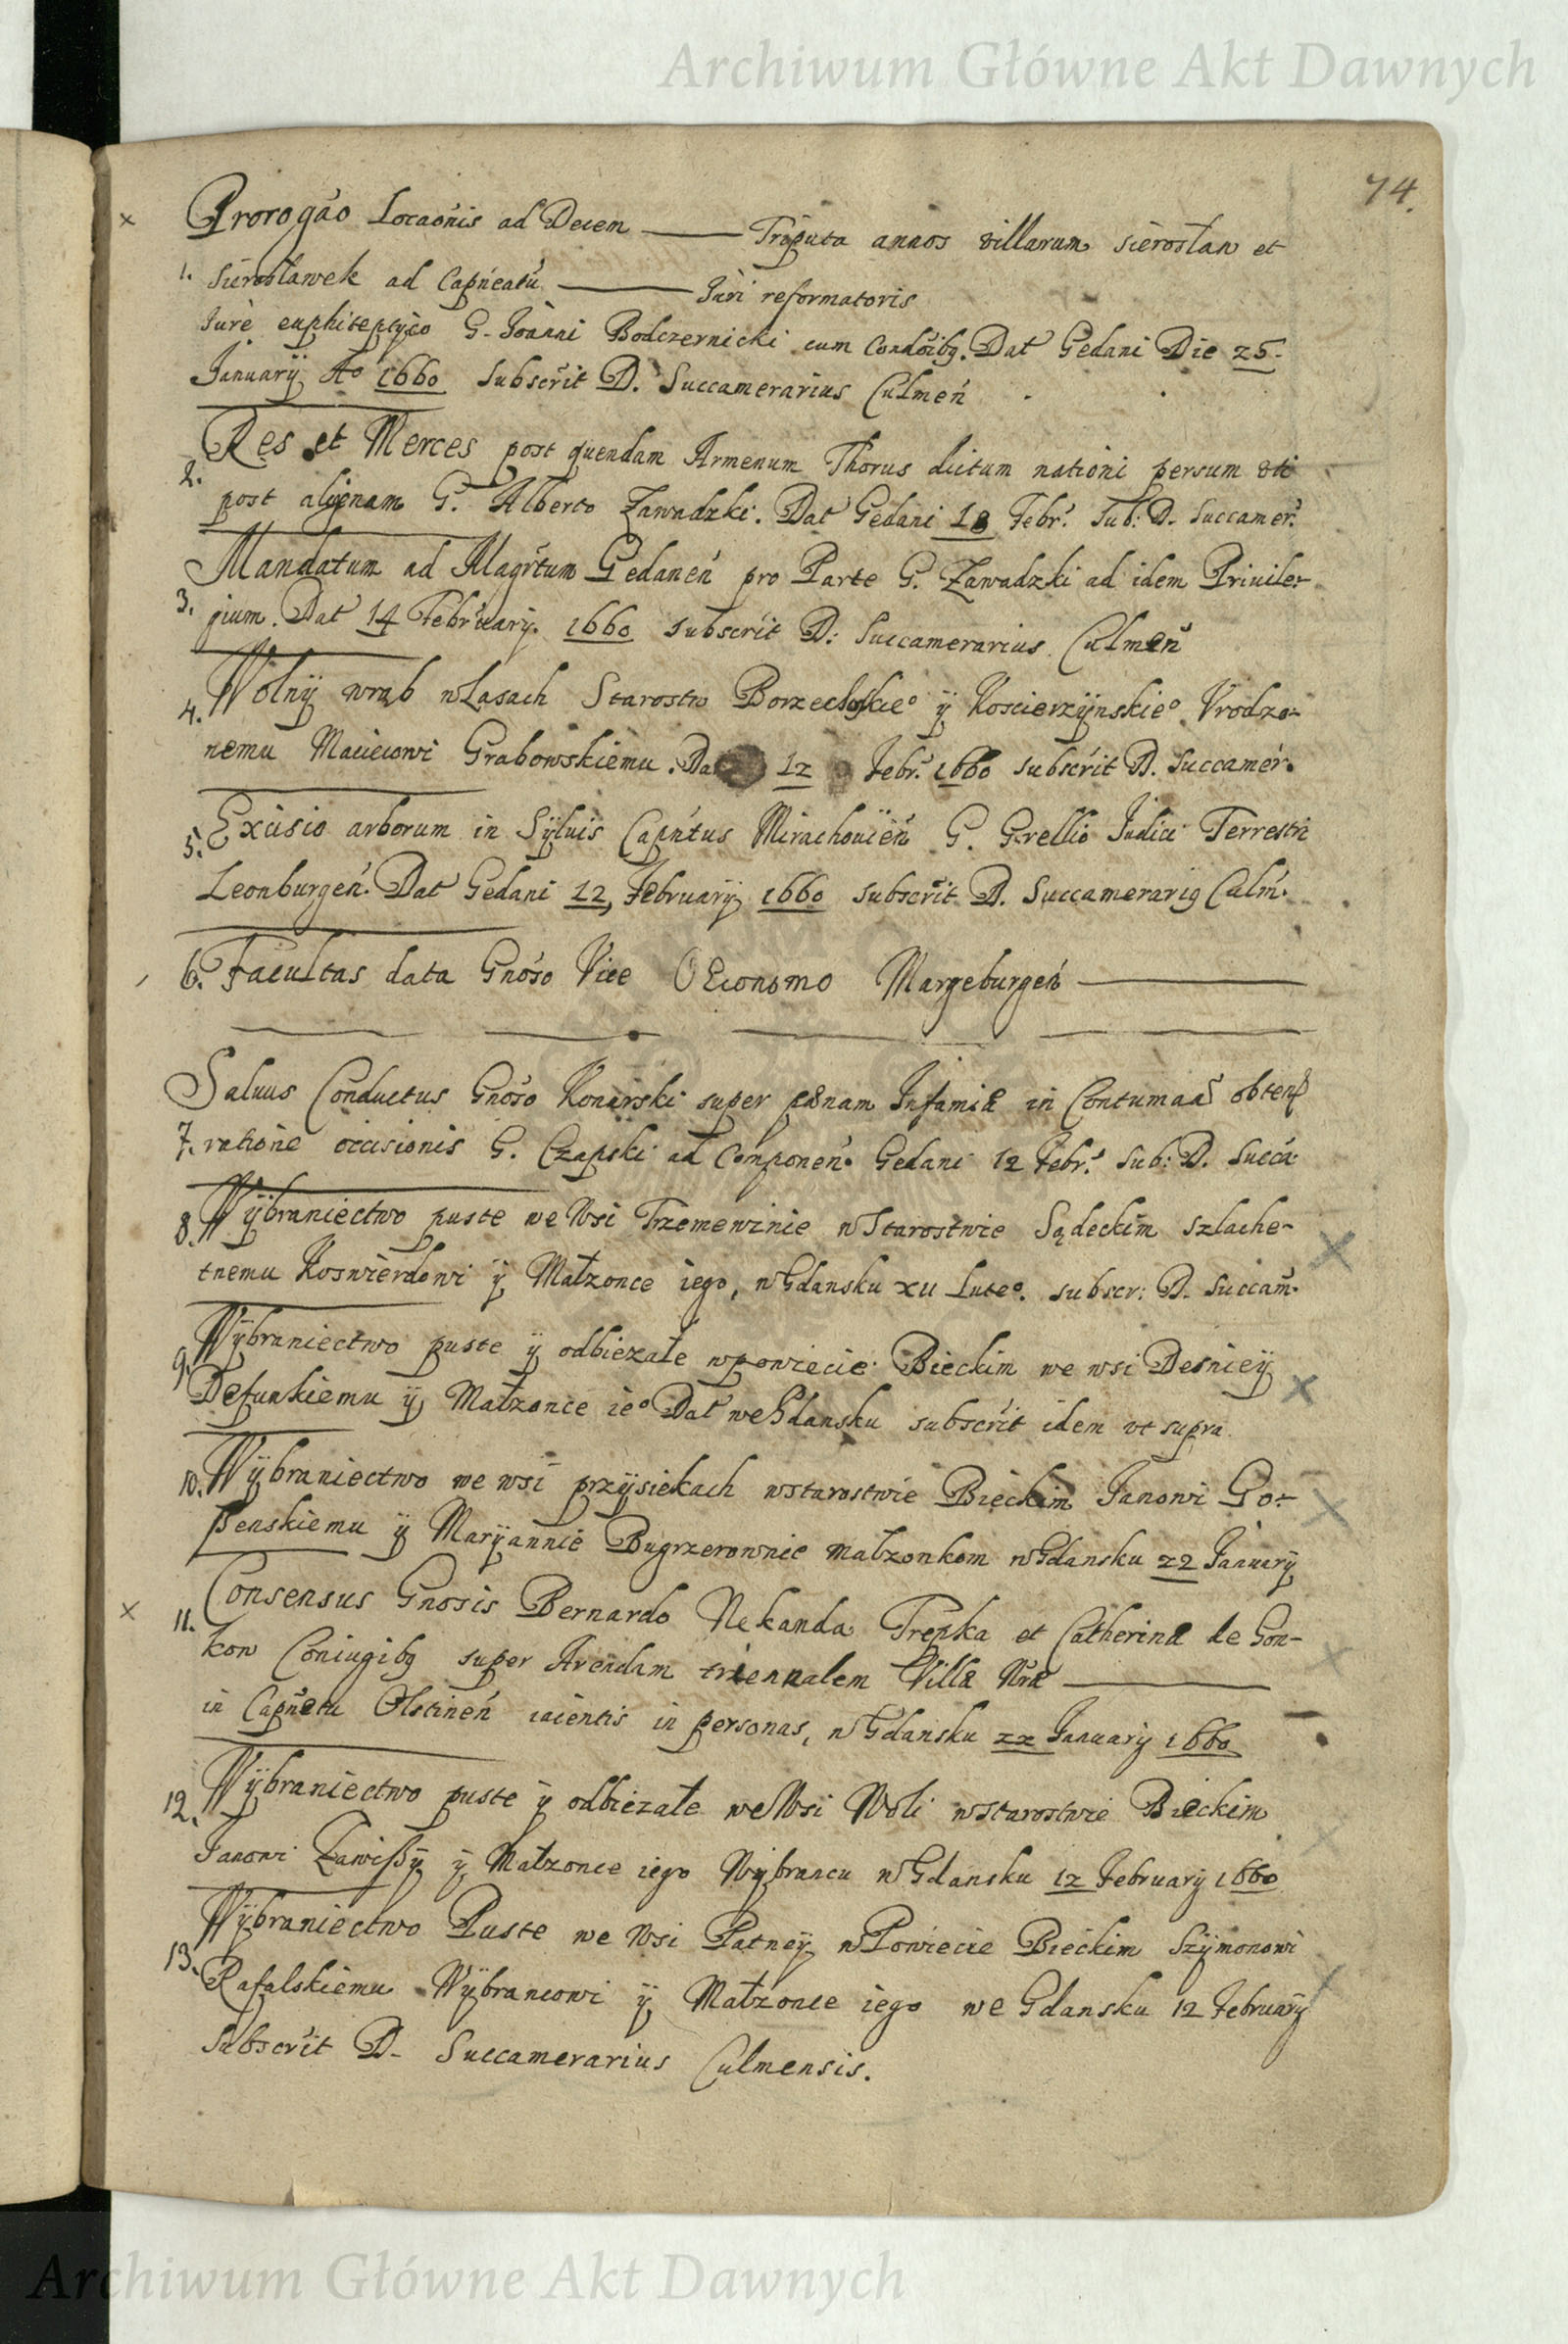 Archiwum Główne Akt Dawnych
74.
Prorogáo Locaónis ad Decem —— Triputa annos villarum Sierosław et
1. Sierosławek ad Capneatũ —— Juri reformatoris
Jure emphiteptyco G. Joanni Bodczernicki cum Condoibg. Dat Gedani Die 25.
Januarÿ Aº 1660 subscrit D. Succamerarius Culmeń
2. Res et Merces post quendam Armenum Thorus dictum nationi persum uti
post aligenam G. Alberto Zawadzki. Dat Gedani 18 Febr. Sub: D. Succamer.
Mandatum ad Magrtum Gedaneń pro Parte G. Zawadzki ad idem Priuile-
3. gium. Dat 14 February. 1660 subscrit D: Succamerarius Culmeń
4. Wolnÿ wrąb wLasach Starostw Borzechoskieº ÿ Koscierzÿnskieº Vrodzo-
nemu Macieiowi Grabowskiemu. Dat 12 Febr. 1660 subscrit D. Succamer.
5. Excisio arborum in Sÿluis Capńtus Mirachouień G. Grellio Judici Terrestri
Leonburgeń. Dat Gedani 12, Februarÿ 1660 subscrit D. Succamerarig Culm.
6. Facultas data Gnóso Vice OEconomo Margeburgeń ——
Saluus Conductus Gnoso Konarski super pænam Infamiæ in Contumaa obten
7. ratione occisionis G. Czapski ad Componeń. Gedani 12 Febr. Sub: D. Succa:
8. Wÿbraniectwo puste we Wsi Trzemewinie w Starostwie Sądeckim szlache-
tnemu Koswierdowi ÿ Małzonce iego, w Gdansku XII Luteº. subscr: D. Succam.
9. Wÿbraniectwo puste ÿ odbiezałe wpowiecie Bieckim we wsi Desnieÿ
Defunkiemu ÿ Małzonce ieº Dat we Gdansku subscrit idem ut supra
10. Wÿbraniectwo we wsi przÿsiekach wstarostwie Bieckim Janowi Go-
ßenskiemu ÿ Marÿannie Bugrzerownie małzonkom w Gdansku 22 Januarÿ
11. Consensus Gnosis Bernardo Nekanda Trepka et Catherinæ de Gon-
kow Coniugibg super Arendam triennalem Villæ Nræ ——
in Capnetu Olstineń iacentis in personas, w Gdansku 22 Januarÿ 1660
12. Wÿbraniectwo puste ÿ odbiezałe we Wsi Woli wstarostwie Bieckim
Janowi Zawißÿ ÿ Małzonce iego Wÿbrancu w Gdansku 12 Februarÿ 1660
Wÿbraniectwo Puste we Wsi Patneÿ w Powiecie Bieckim Szÿmonowi
13. Rafalskiemu Wÿbrancowi ÿ Małzonce iego we Gdansku 12 Februarÿ
Subscrit D. Succamerarius Culmensis.
Archiwum Główne Akt Dawnych